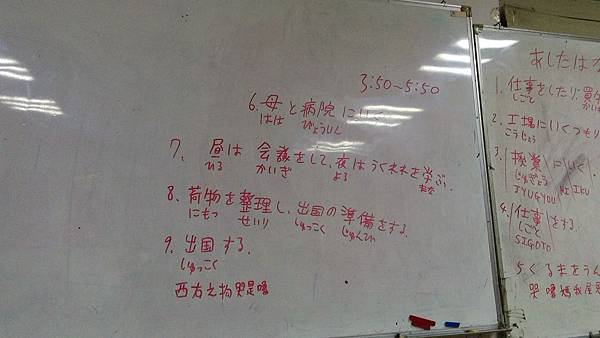 3:50~5:50
6.母と病院にいく
はは びょういん
7. 昼は 会議をして、夜はうくれれを学ぶ.
ひる かいぎ よる まな
8. 荷物を整理し、出国の準備をする.
にもつ せいり しゅっこく じゅんび
9. 出国する.
しゅっこく
西方之物
あしたは
1. 仕事をしたり、買
しごと
2. 工場にいくつもり
こうじょう
3. 授業 にいく
じゅぎょう
JYUGYOU NI IKU
4. 仕事をする.
しごと
SIGOTO
5 くるまをうん
哭嚕媽我屋